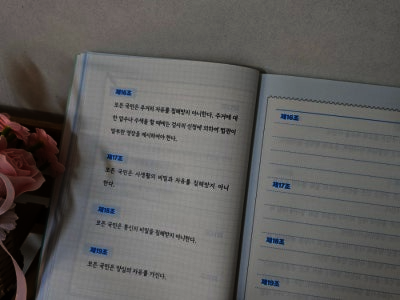 제16조
모든 국민은 주거의 자유를 침해받지 아니한다. 주거에 대
한 압수나 수색을 할 때에는 검사의 신청에 의하여 법관이
발부한 영장을 제시하여야 한다.
제17조
모든 국민은 사생활의 비밀과 자유를 침해받지 아니
한다.
제18조
모든 국민은 통신의 비밀을 침해받지 아니한다.
제19조
모든 국민은 양심의 자유를 가진다.
제16조
제17조
제18조
제19조